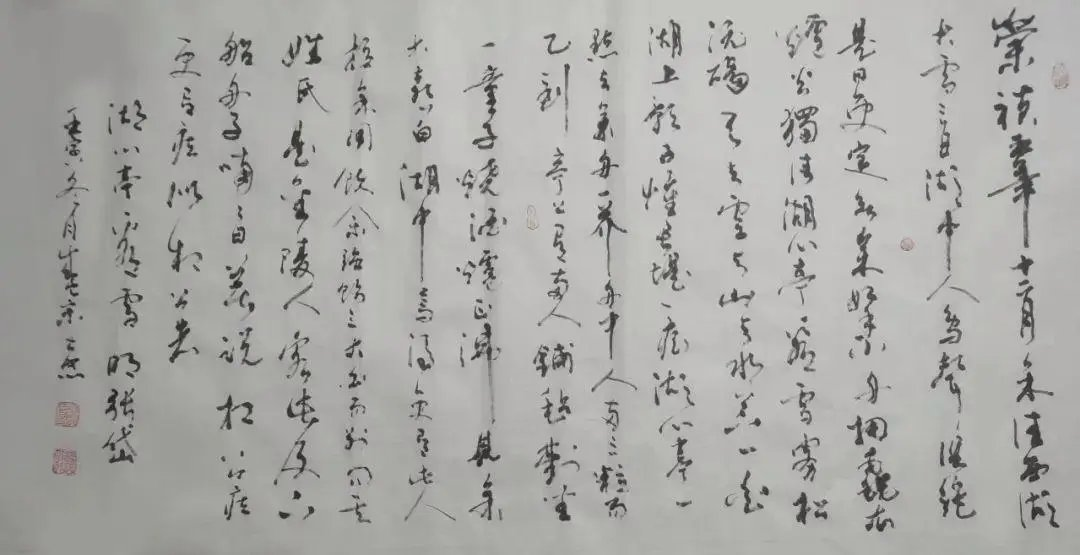 崇禎五年十二月余住西湖
大雪三日湖中人鳥聲俱絕
是日更定矣余拏小舟擁毳衣
爐火獨往湖心亭看雪霧松
沆碭天与雲与山与水上下一白
湖上影子惟長堤一痕湖心亭一
點与余舟一芥舟中人两三粒而
已到亭上有两人鋪氈對坐
一童子燒酒爐正沸見余
大喜曰湖中焉得更有此人
拉余同飲余強飲三大白而別問其
姓氏是金陵人客此及下
船舟子喃喃曰莫說相公痴
更有痴似相公者
湖心亭看雪 明張岱
壬寅冬月